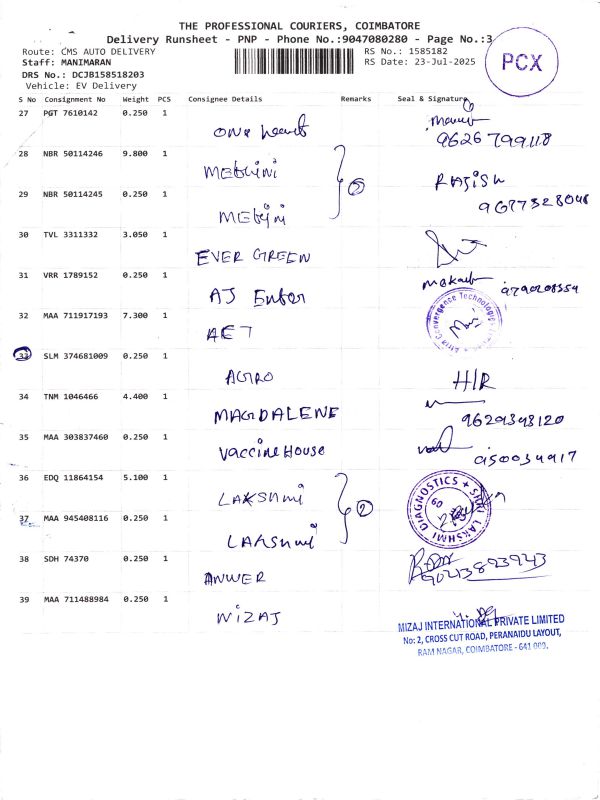 THE PROFESSIONAL COURIERS, COIMBATORE
Delivery Runsheet - PNP - Phone No.:9047080280 - Page No.:3
Route: CMS AUTO DELIVERY RS No.: 1585182
Staff: MANIMARAN RS Date: 23-Jul-2025
DRS No.: DCJB158518203
Vehicle: EV Delivery
PCX
S No Consignment No Weight PCS Consignee Details Remarks Seal & Signature
27 PGT 7610142 0.250 1
One heart 9626799118
28 NBR 50114246 9.800 1
29 NBR 50114245 0.250 1
RAJISH
9677328048
30 TVL 3311332 3.050 1
EVER GREEN
31 VRR 1789152 0.250 1
AJ Enter 9790208359
32 MAA 711917193 7.300 1
AET
33 SLM 374681009 0.250 1
AGRO H/R
34 TNM 1046466 4.400 1
MAGDALENE 9629348120
35 MAA 303837460 0.250 1
Vaccine House
36 EDQ 11864154 5.100 1
LAKSHMI 2
DIAGNOSTICS SHRI LAKSHMI
37 MAA 945408116 0.250 1
LAKSHMI
38 SDH 74370 0.250 1
ANWER 90213893943
39 MAA 711488984 0.250 1
MIZAJ
MIZAJ INTERNATIONAL PRIVATE LIMITED
No: 2, CROSS CUT ROAD, PERANAIDU LAYOUT,
RAM NAGAR, COIMBATORE - 641 009.